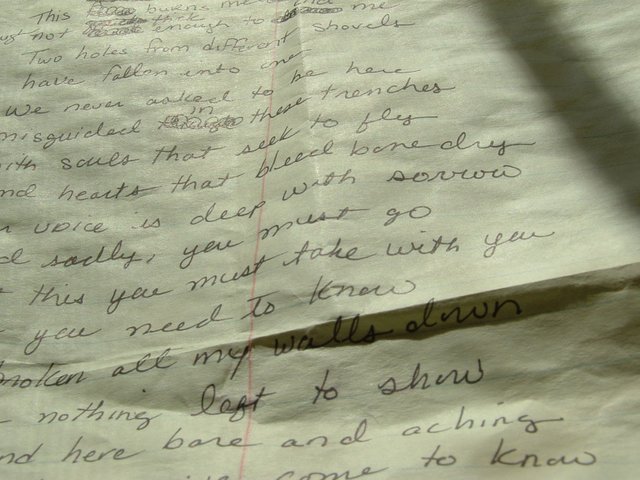 This burns me and me
not thick enough to
Two holes from different shovels
have fallen into one
We never asked to be here
misguided in these trenches
with souls that seek to fly
and hearts that bleed bone dry
voice is deep with sorrow
sadly, you must go
this you must take with you
you need to know
broken all my walls down
nothing left to show
and here bare and aching
come to know